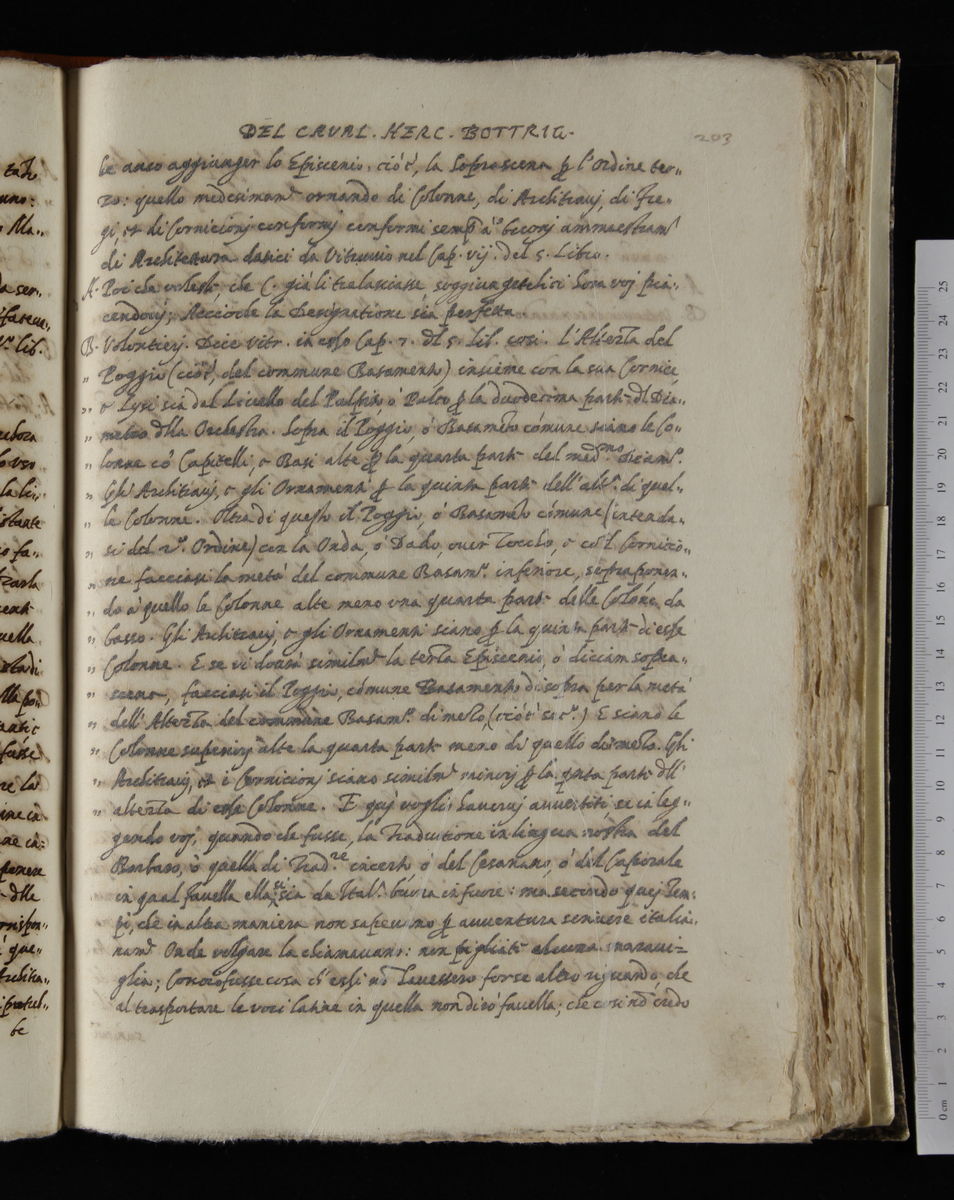 DEL CAVAL. HERC. BOTTRIG. 203
be anco aggiunger lo Episcenio, ciò è, la Soprascena ꝑ l'Ordine ter-
zo: quello medesimamᵉ ornando di Colonne, di Architravj, di Fre-
gi, et di Cornicionj conformj conformi semp à
di Architettura datici da Vitruvio nel Cap. vij. del 5. Libro.
A. Poi che già li tralasciasse hora voj pia-
cendovj; Acciò che la Designatione sia perfetta.
B. Volontierj. Dice Vitr. in esso Cap. 7. dl 5. lib. così. L'Altezza del
" Poggio (ciò è, del commune Basamento) insieme con la sua Cornice,
" e Lysi sia dal livello del Pulpito, ò Palco ꝑ la duodecima parte dl Dia-
" metro dlla Orchestra. Sopra il Poggio, ò Basamēto cōmune siano le Co-
" lonne cō Capitelli, e Basi alte ꝑ la quarta parte del medᵐᵒ Diamᵒ.
" Gli Architravj, e gli Ornamenti ꝑ la quinta parte dell' altᵃ di quel-
" le Colonne. Oltra di questo il Poggio, ò Basamēto cōmune (intenda-
" si del 2ᵒ Ordine) con la Onda, ò Dado, over Zoccho, e co 'l Cornicio-
" ne facciasi la metà del commune Basamᵒ. inferiore, sopraponen-
" do à quello le Colonne alte meno una quarta parte delle Colone da
" basso. Gli Architravj, e gli Ornamenti siano ꝑ la quinta parte di esse
" Colonne. E se vi dovrà similmᵉ la terza Episcenio, ò diciam sopra-
" scena, facciasi il Poggio, cōmune Basamento di sopra per la metà
" dell' Altezza del commune Basamᵒ. di mezo, (ciò è 2ᵒ.) E siano le
" Colonne superiorj alte la quarta parte meno di quelle di mezo. Gli
" Architravj, et i Cornicionj siano similmᵉ ꝑ la qnta parte dll'
" altezza di esse Colonne. E quj vogli havervj avvertiti se in leg-
gendo voj, quando che fusse, la Tradutione in lingua nostra del
Barbaro, ò quella di Tradʳᵉ incerto, ò del Cesariano, ò del Caporale
in qual favella ella sia da Italᵃ in fuore: ma secondo quej Tem-
pi, che in altra maniera non sapevano ꝑ avventura scrivere italia-
namᵉ Onde volgare la chiamavano: non pigliate alcuna maravi-
glia; Conciofusse cosa ch'essi nō havessero forse altro riguardo, che
al trasportare le voci latine in quella non dirò favella; che così nō credo